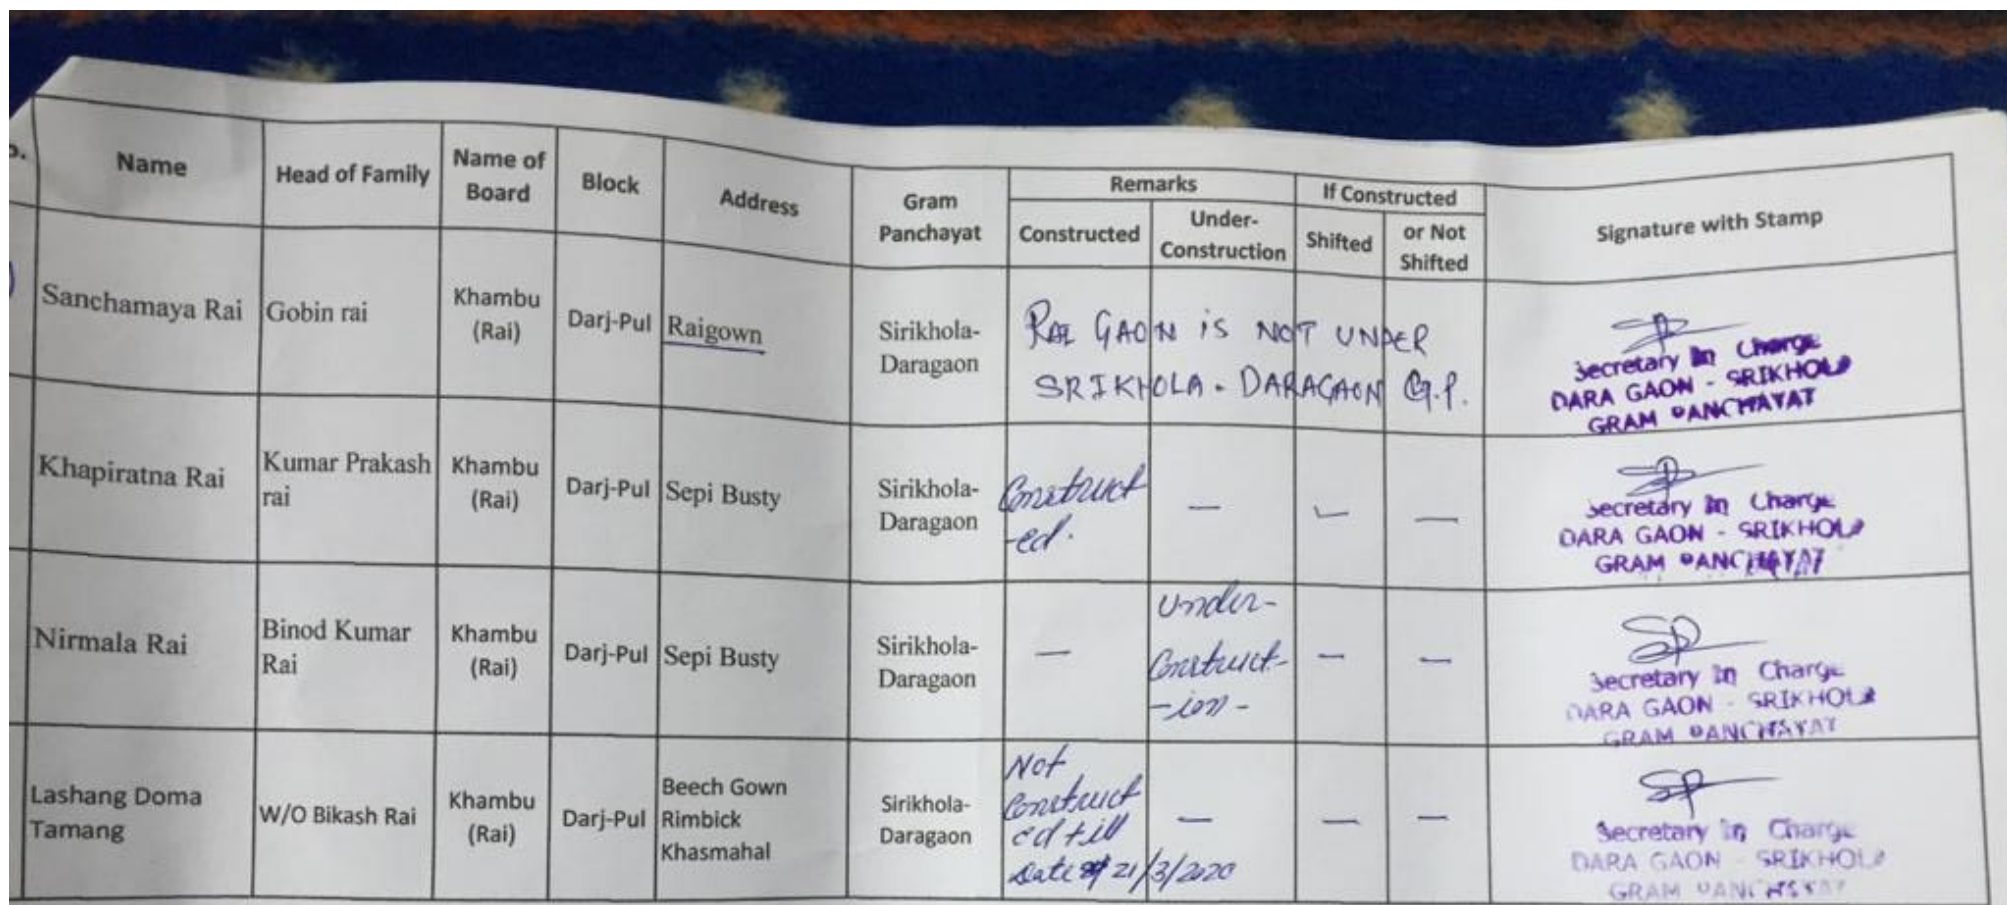 Name Head of Family Name of Board Block Address Gram Panchayat Remarks If Constructed Signature with Stamp
Constructed Under-Construction Shifted or Not Shifted
Sanchamaya Rai Gobin rai Khambu (Rai) Darj-Pul Raigown Sirikhola-Daragaon
RAI GAON IS NOT UNDER
SRIKHOLA - DARAGAON G.P.
Secretary In Charge
DARA GAON - SRIKHOLA
GRAM PANCHAYAT
Khapiratna Rai Kumar Prakash rai Khambu (Rai) Darj-Pul Sepi Busty Sirikhola-Daragaon Construct-ed. — ✓ —
Secretary In Charge
DARA GAON - SRIKHOLA
GRAM PANCHAYAT
Nirmala Rai Binod Kumar Rai Khambu (Rai) Darj-Pul Sepi Busty Sirikhola-Daragaon — Under-Construct-ion- — —
Secretary In Charge
DARA GAON - SRIKHOLA
GRAM PANCHAYAT
Lashang Doma Tamang W/O Bikash Rai Khambu (Rai) Darj-Pul Beech Gown Rimbick Khasmahal Sirikhola-Daragaon Not Constructed till Date 21/3/2020 — — —
Secretary In Charge
DARA GAON - SRIKHOLA
GRAM PANCHAYAT